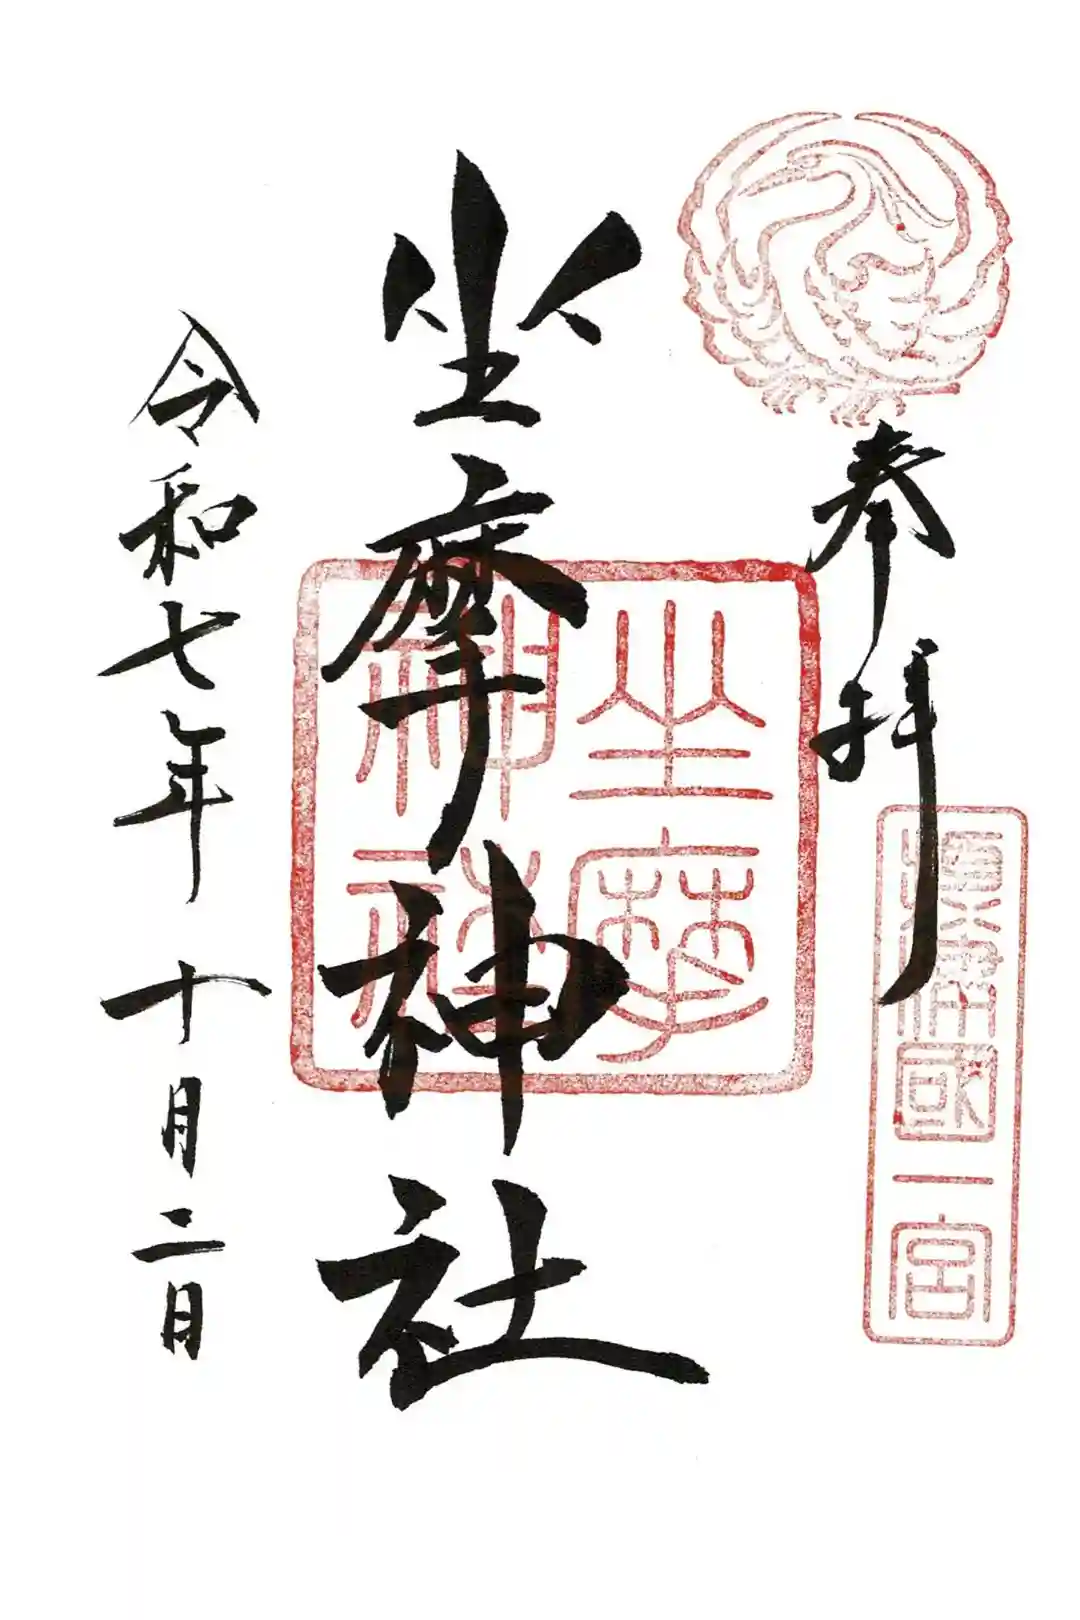 奉拝
攝津國一宮
坐摩神社
坐摩神社
令和七年十月二日